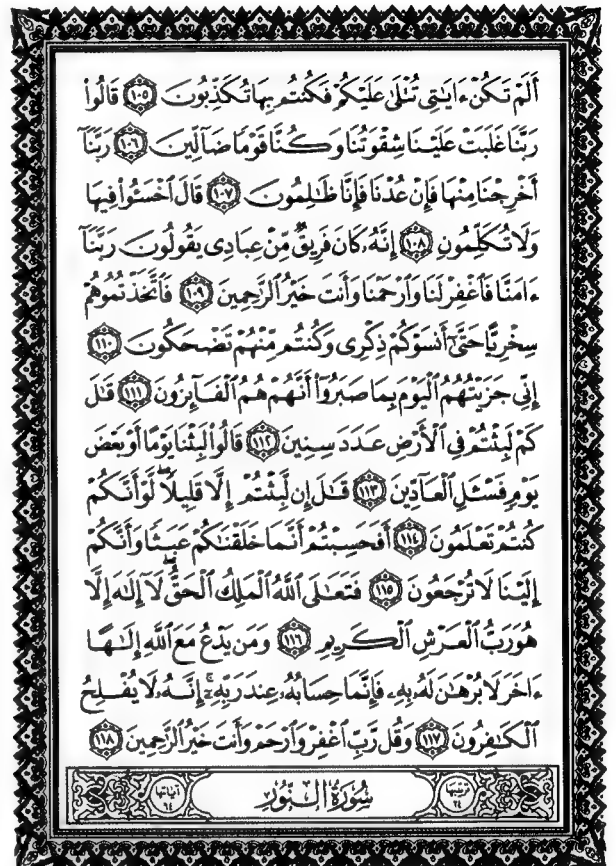 أَلَمْ تَكُنْ ءَايَٰتِى تُتْلَىٰ عَلَيْكُمْ فَكُنتُم بِهَا تُكَذِّبُونَ ١٠٥ قَالُوا۟
رَبَّنَا غَلَبَتْ عَلَيْنَا شِقْوَتُنَا وَكُنَّا قَوْمًا ضَآلِّينَ ١٠٦ رَبَّنَآ
أَخْرِجْنَا مِنْهَا فَإِنْ عُدْنَا فَإِنَّا ظَٰلِمُونَ ١٠٧ قَالَ ٱخْسَـُٔوا۟ فِيهَا
وَلَا تُكَلِّمُونِ ١٠٨ إِنَّهُۥ كَانَ فَرِيقٌ مِّنْ عِبَادِى يَقُولُونَ رَبَّنَآ
ءَامَنَّا فَٱغْفِرْ لَنَا وَٱرْحَمْنَا وَأَنتَ خَيْرُ ٱلرَّٰحِمِينَ ١٠٩ فَٱتَّخَذْتُمُوهُمْ
سِخْرِيًّا حَتَّىٰٓ أَنسَوْكُمْ ذِكْرِى وَكُنتُم مِّنْهُمْ تَضْحَكُونَ ١١٠
إِنِّى جَزَيْتُهُمُ ٱلْيَوْمَ بِمَا صَبَرُوٓا۟ أَنَّهُمْ هُمُ ٱلْفَآئِزُونَ ١١١ قَٰلَ
كَمْ لَبِثْتُمْ فِى ٱلْأَرْضِ عَدَدَ سِنِينَ ١١٢ قَالُوا۟ لَبِثْنَا يَوْمًا أَوْ بَعْضَ
يَوْمٍ فَسْـَٔلِ ٱلْعَآدِّينَ ١١٣ قَٰلَ إِن لَّبِثْتُمْ إِلَّا قَلِيلًا ۖ لَّوْ أَنَّكُمْ
كُنتُمْ تَعْلَمُونَ ١١٤ أَفَحَسِبْتُمْ أَنَّمَا خَلَقْنَٰكُمْ عَبَثًا وَأَنَّكُمْ
إِلَيْنَا لَا تُرْجَعُونَ ١١٥ فَتَعَٰلَى ٱللَّهُ ٱلْمَلِكُ ٱلْحَقُّ ۖ لَآ إِلَٰهَ إِلَّا
هُوَ رَبُّ ٱلْعَرْشِ ٱلْكَرِيمِ ١١٦ وَمَن يَدْعُ مَعَ ٱللَّهِ إِلَٰهًا
ءَاخَرَ لَا بُرْهَٰنَ لَهُۥ بِهِۦ فَإِنَّمَا حِسَابُهُۥ عِندَ رَبِّهِۦٓ ۚ إِنَّهُۥ لَا يُفْلِحُ
ٱلْكَٰفِرُونَ ١١٧ وَقُل رَّبِّ ٱغْفِرْ وَٱرْحَمْ وَأَنتَ خَيْرُ ٱلرَّٰحِمِينَ ١١٨
ترتيبها ٢٤ سُورَةُ النُّورِ آياتها ٦٤